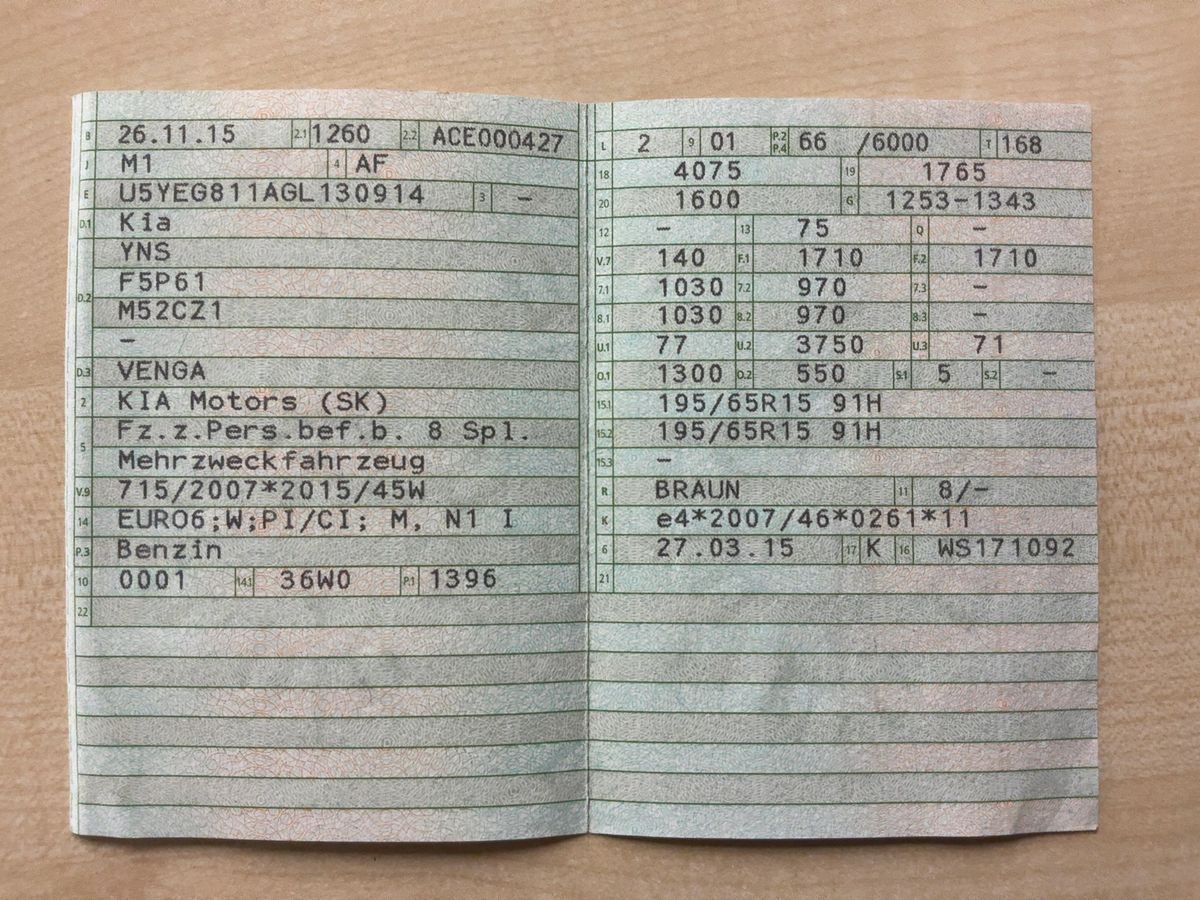 B 26.11.15 2.1 1260 2.2 ACE000427
J M1 4 AF
E U5YEG811AGL130914 3 –
D.1 Kia
YNS
D.2 F5P61
M52CZ1
–
D.3 VENGA
2 KIA Motors (SK)
5 Fz.z.Pers.bef.b. 8 Spl.
Mehrzweckfahrzeug
V.9 715/2007*2015/45W
14 EURO6;W;PI/CI; M, N1 I
P.3 Benzin
10 0001 14.1 36W0 P.1 1396
22
L 2 9 01 P.2 P.4 66 /6000 T 168
18 4075 19 1765
20 1600 G 1253-1343
12 – 13 75 Q –
V.7 140 F.1 1710 F.2 1710
7.1 1030 7.2 970 7.3 –
8.1 1030 8.2 970 8.3 –
U.1 77 U.2 3750 U.3 71
O.1 1300 O.2 550 S.1 5 S.2 –
15.1 195/65R15 91H
15.2 195/65R15 91H
15.3 –
R BRAUN 11 8/–
K e4*2007/46*0261*11
6 27.03.15 17 K 16 WS171092
21